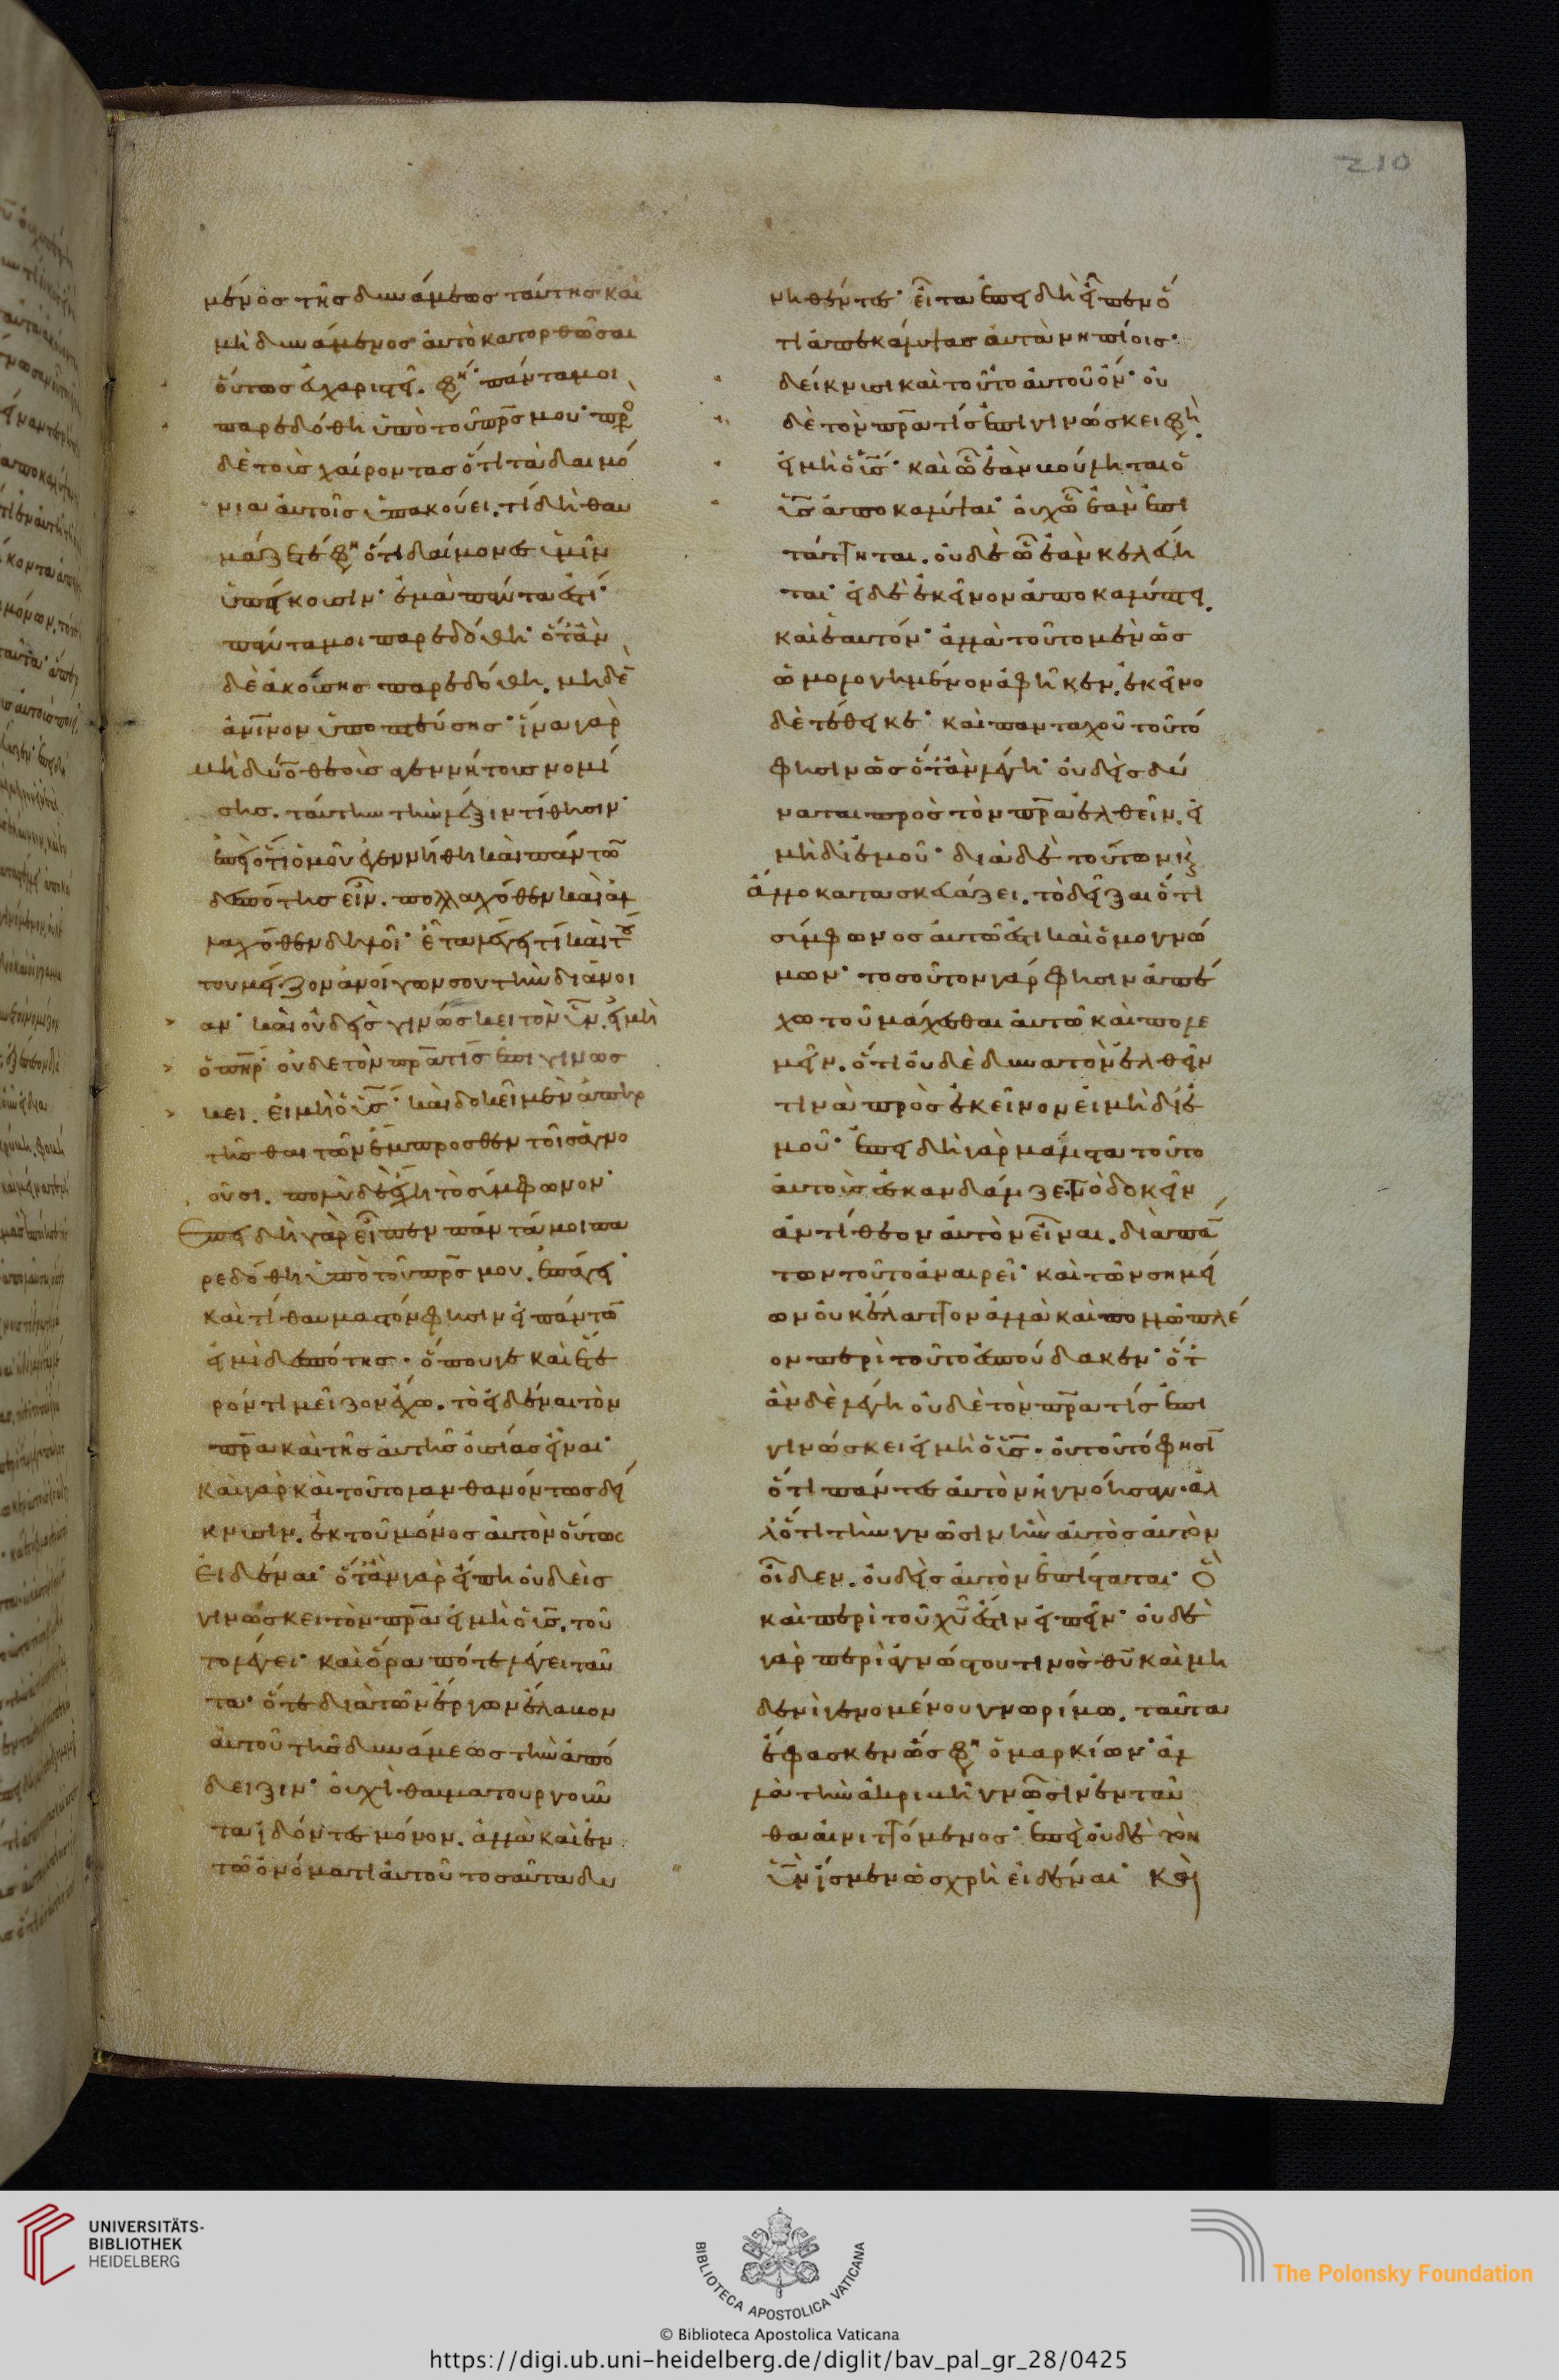 210
μένος τῆς δυνάμεως ταύτης καὶ
μὴ δυνάμενος αὐτὸ κατορθῶσαι
οὕτως εὐχαριστεῖ. φη· πάντα μοι
παρεδόθη ὑπὸ τοῦ πρς μου· πρὸ
δὲ τοὺς χαίροντας ὅτι τὰ δαιμό
νια αὐτοῖς ὑπακούει. τί δὴ θαυ
μάζετέ φη ὅτι δαίμονες ὑμῖν
ὑπείκουσιν· ἐμὰ πάντα ἐστί·
πάντα μοι παρεδόθη· ὅταν
δὲ ἀκούσης παρεδόθη. μηδὲ
ἀνινον ὑποπτεύσης· ἵνα γὰρ
μὴ δύο θεοὺς ἀγεννήτους νομί
σης. ταύτην τὴν λέξιν τίθησιν·
ἐπεὶ ὅτι ὁμοῦ ἐγεννήθη καὶ πάντω
δεσπότης ἦν. πολλαχόθεν καὶ ἀλ
λαχόθεν δηλοῖ· εἶτα λέγει τί καὶ τού
του μεῖζον ἀνοίγων σου τὴν διάνοι
αν· καὶ οὐδεὶς γινώσκει τὸν υν. εἰ μὴ
ὁ πηρ· οὐδὲ τὸν πρα τίς ἐπιγινώσ
κει. εἰ μὴ ὁ υς· καὶ δοκεῖ μὲν ἀπηρ
τῆσθαι τῶν ἔμπροσθεν τοῖς ἀγνο
οῦσι. πολὺ δὲ ἔχει τὸ σύμφωνον·
Ἐπειδὴ γὰρ εἶπεν πάντά μοι πα
ρεδόθη ὑπὸ τοῦ πρς μου. ἐπάγει·
καὶ τί θαυμαστόν φησιν εἰ πάντω
εἰμὶ δεσπότης. ὅπου γε καὶ ἕτε
ρόν τι μεῖζον ἔχω. τὸ εἰδέναι τὸν
πρα καὶ τῆς αὐτῆς οὐσίας εἶναι·
καὶ γὰρ καὶ τοῦτο λανθανόντως δεί
κνυσιν. ἐκ τοῦ μόνος αὐτὸν οὕτως
εἰδέναι· ὅταν γὰρ εἴπη οὐδεὶς
γινώσκει τὸν πρα εἰ μὴ ὁ υς. τοῦ
το λέγει· καὶ ὅρα πότε λέγει ταῦ
τα· ὅτε διὰ τῶν ἔργων ἔλαβον
αὐτοῦ τῆς δυνάμεως τὴν ἀπό
δειξιν· οὐχὶ θαυματουργοῦν
τα ἰδόντες μόνον. ἀλλὰ καὶ ἐν
τῷ ὀνόματι αὐτοῦ τοσαῦτα δυ
νηθέντες· εἶτα ἐπειδὴ εἶπεν ὅ
τι ἀπεκάλυψας αὐτὰ νηπίοις·
δείκνυσι καὶ τοῦτο αὐτοῦ ὄν· οὐ
δὲ τὸν πρα τίς ἐπιγινώσκει φη.
εἰ μὴ ὁ υς· καὶ ᾧ ἐὰν βούληται ὁ
υς ἀποκαλύψαι· οὐχ ᾧ ἐὰν ἐπι
τάττηται. οὐδὲ ᾧ ἐὰν κελεύη
ται· εἰ δὲ ἐκεῖνον ἀποκαλύπτει.
καὶ ἑαυτόν· ἀλλὰ τοῦτο μὲν ὡς
ὡμολογημένον ἀφῆκεν. ἐκεῖνο
δὲ τέθεικε· καὶ πανταχοῦ τοῦτό
φησιν ὡς ὅταν λέγη· οὐδεὶς δύ
ναται πρὸς τὸν πρα ἐλθεῖν. εἰ
μὴ δι' ἐμοῦ· διὰ δὲ τούτων κ
ἄλλο κατασκευάζει. τὸ δεῖξαι ὅτι
σύμφωνος αὐτῷ ἐστι καὶ ὁμογνώ
μων· τοσοῦτον γὰρ φησιν ἀπέ
χω τοῦ μάχεσθαι αὐτῷ καὶ πολε
μεῖν. ὅτι οὐδὲ δυνατὸν ἐλθεῖν
τινὰ πρὸς ἐκεῖνον εἰ μὴ δι' ἐ
μοῦ· ἐπειδὴ γὰρ μάλιστα τοῦτο
αὐτοὺς ἐσκανδάλιζε. τὸ δοκεῖν
ἀντίθεον αὐτὸν εἶναι. διὰ πά
των τοῦτο ἀναιρεῖ· καὶ τῶν σημεί
ων οὐκ ἔλαττον ἀλλὰ καὶ πολλῷ πλέ
ον περὶ τοῦτο ἐσπούδακεν· ὅτ
ἂν δὲ λέγη οὐδὲ τὸν πρα τίς ἐπι
γινώσκει εἰ μὴ ὁ υς. οὐ τοῦτό φησι
ὅτι πάντες αὐτὸν ἠγνόησαν. ἀλ
λ' ὅτι τὴν γνῶσιν ἣν αὐτὸς αὐτὸν
οἶδεν. οὐδεὶς αὐτὸν ἐπίσταται· ὃ
καὶ περὶ τοῦ χυ ἔστιν εἰπεῖν· οὐδὲ
γὰρ περὶ ἀγνώστου τινὸς θυ καὶ μη
δενὶ γενομένου γνωρίμω. ταῦτα
ἔφασκεν ὥς φη ὁ μαρκίων· ἀλ
λὰ τὴν ἀκριβῆ γνῶσιν ἐνταῦ
θα αἰνιττόμενος· ἐπεὶ οὐδὲ τὸν
υν ἴσμεν ὡς χρὴ εἰδέναι· καὶ
UNIVERSITÄTS-
BIBLIOTHEK
HEIDELBERG
BIBLIOTECA APOSTOLICA VATICANA
The Polonsky Foundation
© Biblioteca Apostolica Vaticana
https://digi.ub.uni-heidelberg.de/diglit/bav_pal_gr_28/0425